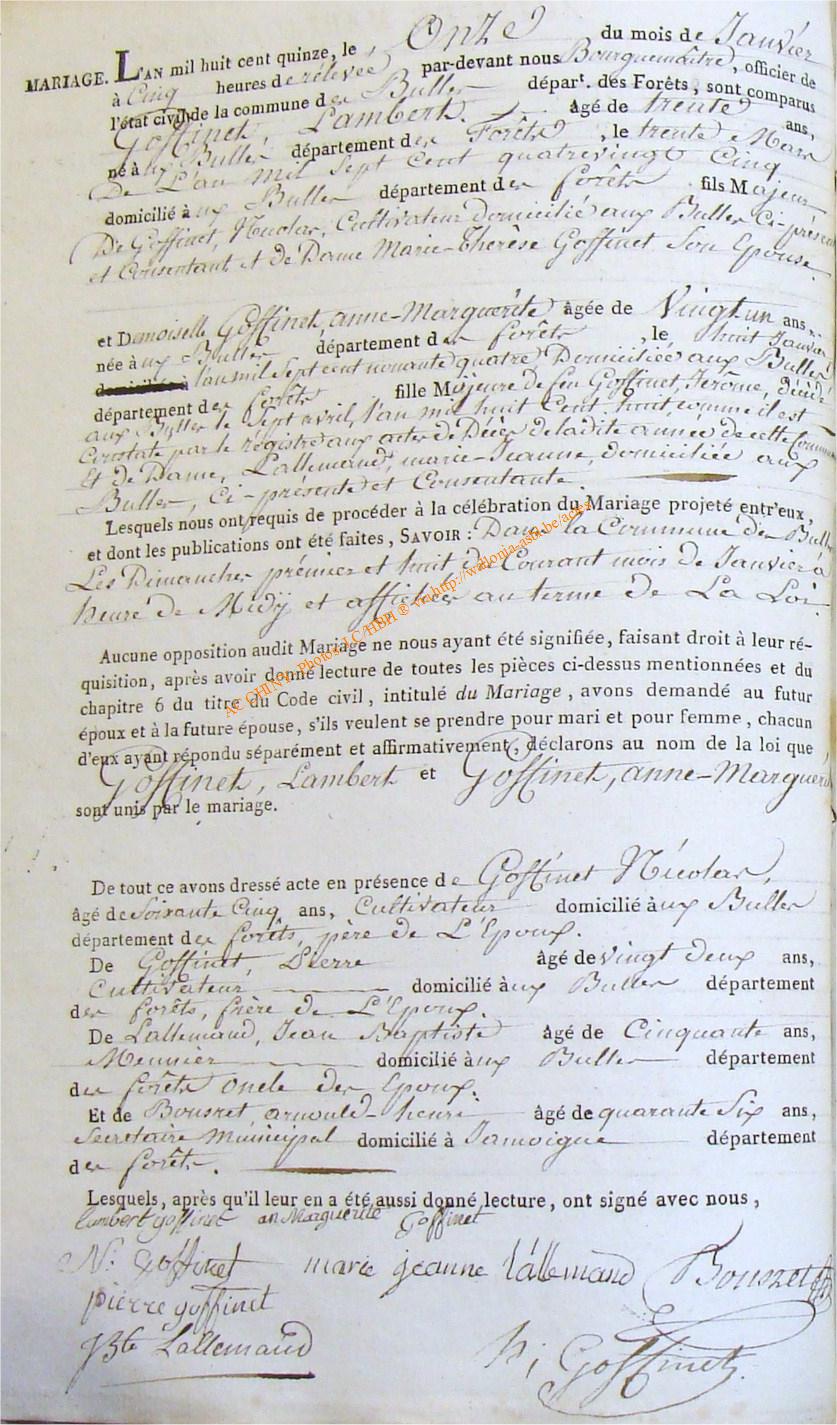 MARIAGE. L'AN mil huit cent quinze, le Onze du mois de Janvier
à Cinq heures de rélevée par-devant nous Bourguemaitre, officier de
l'état civil de la commune des Bulles dépar.t des Forêts, sont comparus
Goffinet, Lambert. âgé de trente ans,
né à ux Bulles département des Forêts, le trente Mars
De L'an mil Sept Cent quatrevingt Cinq
domicilié à ux Bulles département des forêts fils Majeur
De Goffinet, Nicolas, Cultivateur domicilié aux Bulles Ci-présent
et Consentant et de Dame Marie-Thérèse Goffinet Son Epouse.
et Demoiselle Goffinet, anne-Marguérite âgée de Vingt un ans,
née à ux Bulles département des forêts, le huit Janvier
domiciliée à l'an mil Sept cent nonante quatre Domiciliée aux Bulles
département des forêts fille Majeure de feu Goffinet, Jerôme, décédé
aux Bulles le Sept avril, l'an mil huit Cent huit, comme il est
Constaté par le régistre aux actes de Décès de la dite année de cette Commune
Et de Dame, Lallemand, marie-Jeanne, domiciliée aux
Bulles, Ci-présente et Consentante.
Lesquels nous ont requis de procéder à la célébration du Mariage projeté entr'eux,
et dont les publications ont été faites, SAVOIR : Dans la Commune des Bulles
Les Dimanches prémier et huit du Courant mois de Janvier à
heure de Midy et affichées au terme de La Loi.
Aucune opposition audit Mariage ne nous ayant été signifiée, faisant droit à leur ré-
quisition, après avoir donné lecture de toutes les pièces ci-dessus mentionnées et du
chapitre 6 du titre du Code civil, intitulé du Mariage, avons demandé au futur
époux et à la future épouse, s'ils veulent se prendre pour mari et pour femme, chacun
d'eux ayant répondu séparément et affirmativement, déclarons au nom de la loi que
Goffinet, Lambert et Goffinet, anne-Marguérite
sont unis par le mariage.
De tout ce avons dressé acte en présence de Goffinet Nicolas,
âgé de Soixante Cinq ans, Cultivateur domicilié à ux Bulles
département des forêts, père de L'Epoux.
De Goffinet, Pierre âgé de vingt deux ans,
Cultivateur domicilié à ux Bulles département
des forêts, frère de L'Epoux.
De Lallemand, Jean Baptiste âgé de Cinquante ans,
Meunier domicilié à ux Bulles département
des forêts oncle des Epoux.
Et de Bousret arnould-henri âgé de quarante Six ans,
Secretaire Municipal domicilié à Jamoigne département
des forêts.
Lesquels, après qu'il leur en a été aussi donné lecture, ont signé avec nous,
lambert goffinet an Marguerite goffinet
N: Goffinet marie jeanne lallemand Bousret
pierre goffinet
JBte Lallemand
Goffinet
AC CHINY- Photos JC/HBH ® via http://wallonia-asbl.be/actes